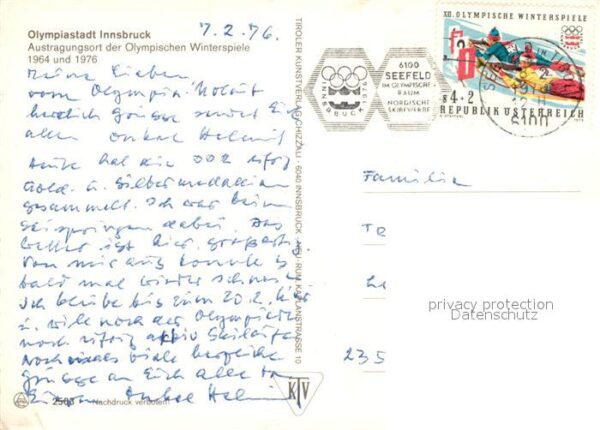 Olympiastadt Innsbruck
Austragungsort der Olympischen Winterspiele
1964 und 1976
7.2.76.
Meine Lieben,
vom Olympia-Holst
herzlich Grüsse sendet Euch
allen Onkel Helmut
Heute hat die DDR
Gold. u. Silbermedaillen
gesammelt. Ich war beim
Skispringen dabei. Das
Wetter ist hier großartig.
Von mir aus konnte es
bald mal wieder schnei-
Ich bleibe bis zum 20.2. hier
u. will nach der Olympiade
noch eifrig aktiv Skilaufen
Nochmals viele herzliche
Grüsse an Euch alle
Onkel Helm
2503 Nachdruck verboten
TIROLER KUNSTVERLAG CHIZZALI · 6040 INNSBRUCK - NEU - RUM, KAPLANSTRASSE 10
KTV
INNSBRUCK 1976
6100
SEEFELD
IM OLYMPISCHEN
RAUM
NORDISCHE
SKIBEWERBE
XII. OLYMPISCHE WINTERSPIELE
S 4+2
REPUBLIK ÖSTERREICH
6100
Familie
235
privacy protection
Datenschutz